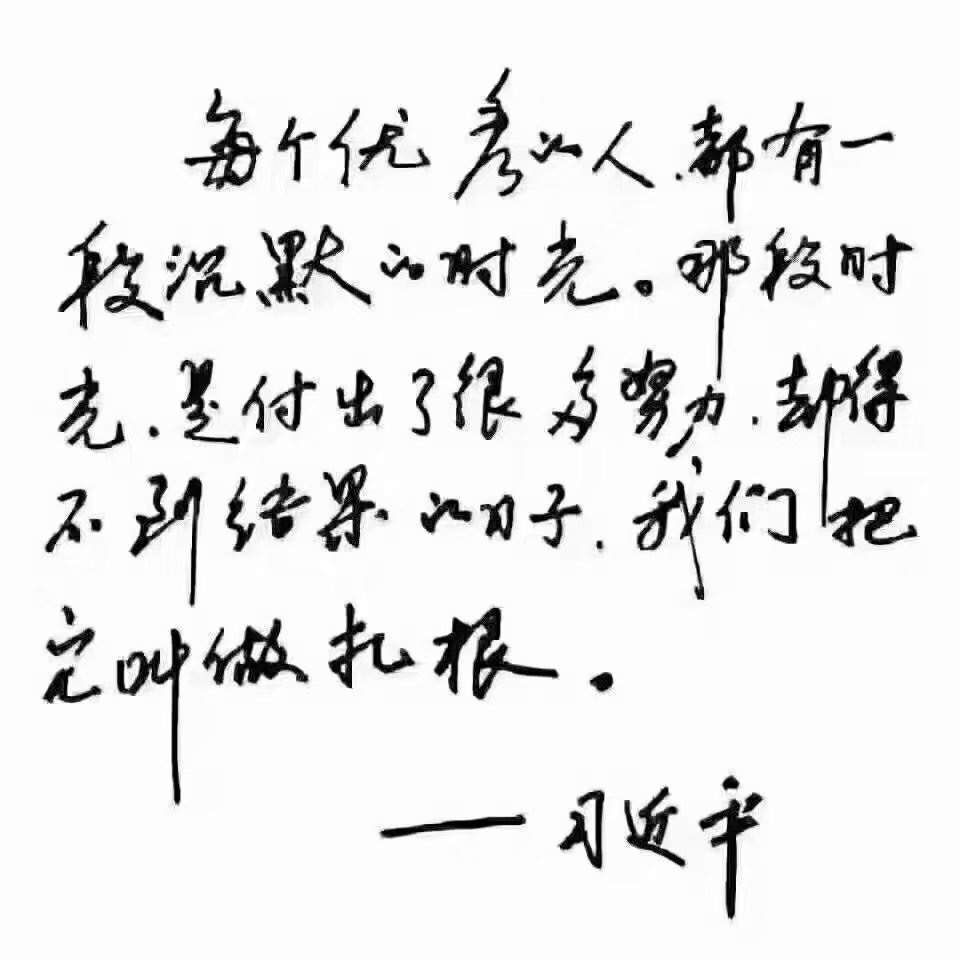 每个优秀的人,都有一
段沉默的时光。那段时
光,是付出了很多努力,却得
不到结果的日子,我们把
它叫做扎根。
——习近平